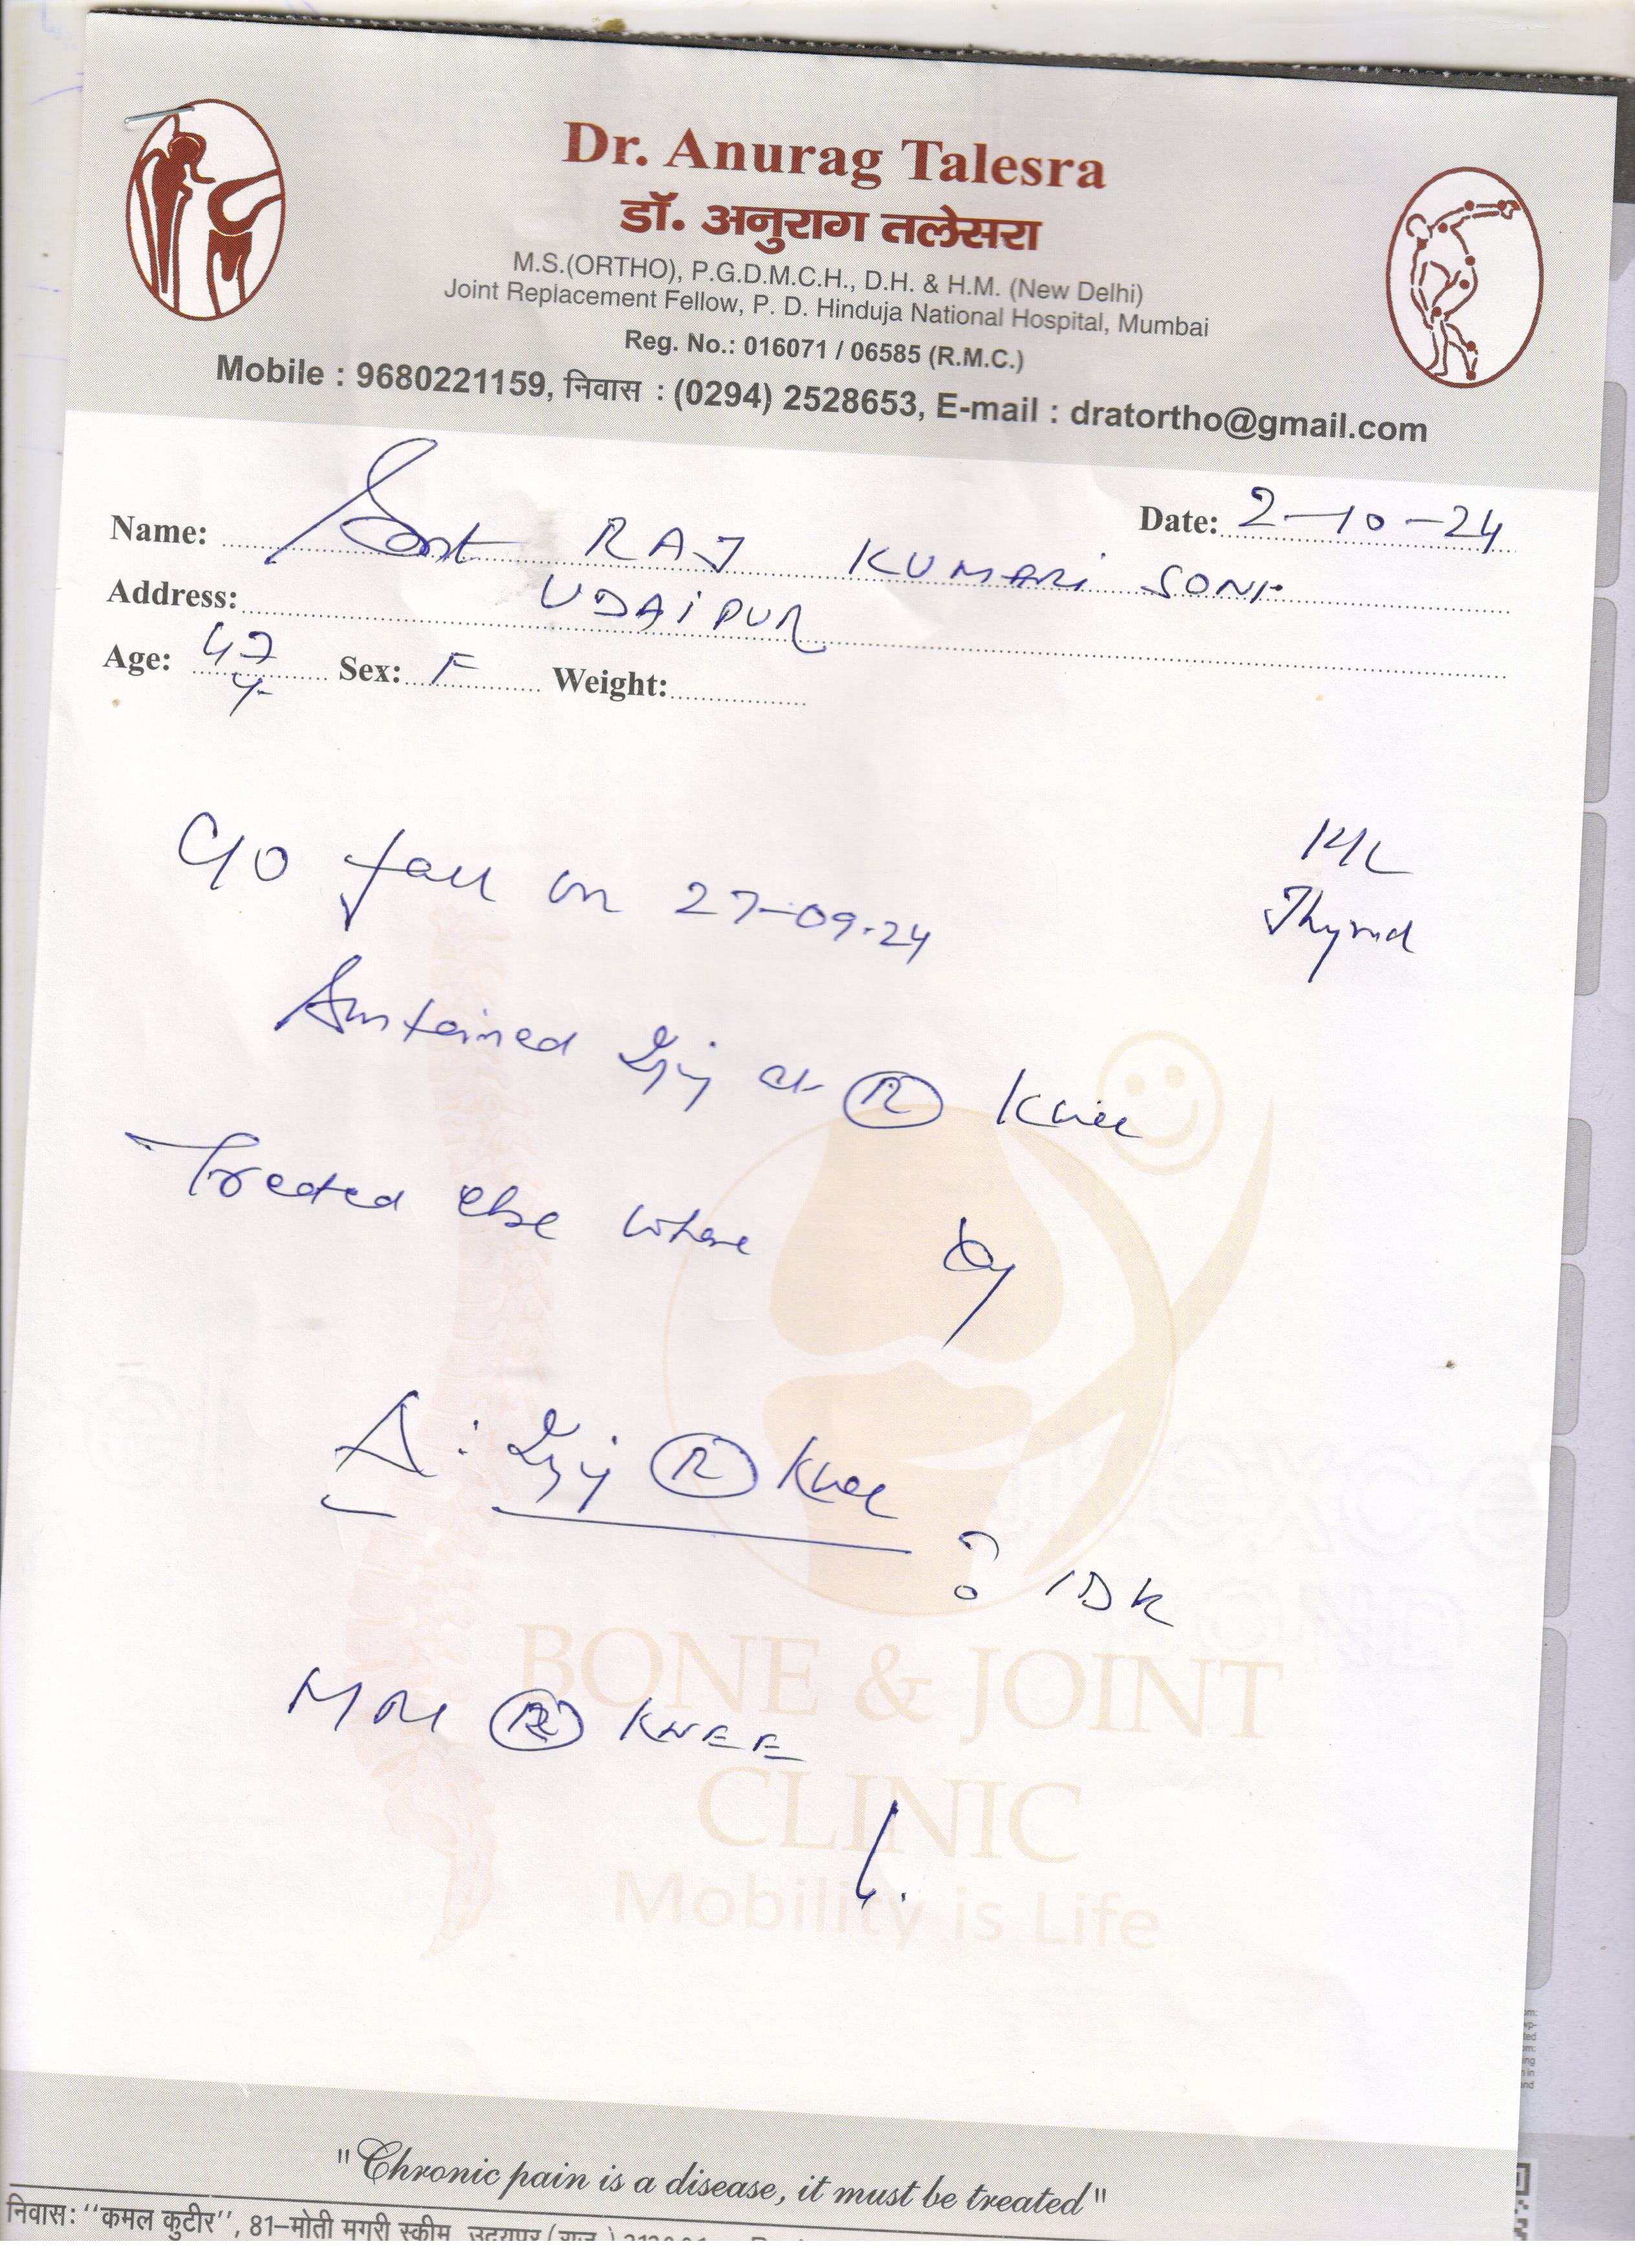 Dr. Anurag Talesra
डॉ. अनुराग तलेसरा
M.S.(ORTHO), P.G.D.M.C.H., D.H. & H.M. (New Delhi)
Joint Replacement Fellow, P. D. Hinduja National Hospital, Mumbai
Reg. No.: 016071 / 06585 (R.M.C.)
Mobile : 9680221159, निवास : (0294) 2528653, E-mail : dratortho@gmail.com
Date: 2-10-24
Name: Smt RAJ KUMARI SONI
Address: UDAIPUR
Age: 47 Sex: F Weight:
C/O fall on 27-09-24
Thyroid
Sustained Inj at R Knee
Treated else where
Δ: Inj R Knee
? IDK
MRI R KNEE
BONE & JOINT
CLINIC
Mobility is Life
"Chronic pain is a disease, it must be treated"
निवास: "कमल कुटीर", 81-मोती मगरी स्कीम, उदयपुर (राज.)